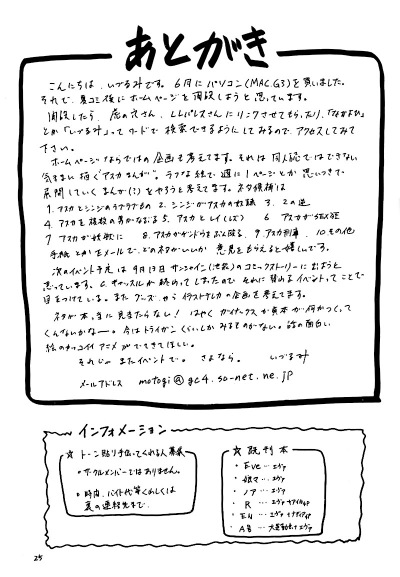 あとがき
こんにちは、いづるみです。6月にパソコン(MAC.G3)を買いました。
それで、夏コミ後にホームページを開設しようと思っています。
開設したら、虎の穴さん、しんパレスさんにリンクさせてもらったり、「なかよひ」
とか「いづるみ」ってワードで検索できるようにしてみるので、アクセスしてみて
下さい。
ホームページならではの企画も考えてます。それは同人誌ではできない
気ままに描く"アスカまんが"。ラフな絵で週に1ページとか思いつきで
展開していくまんが(?)をやろうと考えてます。ネタ候補は
1.アスカとシンジのラブラブもの 2.シンジがアスカの奴隷 3.2の逆
4.アスカを抜殻の男がなおる 5.アスカとレイ(レズ) 6.アスカがSEX狂
7.アスカが妖獣に 8.アスカがゲンドウをおと陥る 9.アスカ刑事 10.その他
手紙とかEメールで、どのネタがいいか意見をもらえると嬉しいです。
次のイベント予定は9月13日サンシャイン(池袋)のコミックストーリーに出ようと
思っています。C.キャッスルが終わってしまったので、それに替わるイベントってことで
目をつけている。またグッズやらイラストテレカの企画を考えてます。
ネタが本当に見あたらない!はやくガイナックスが貞本が何かつくって
くんないかなー。今はトライガンくらいしかみるものがない。話の面白い
絵のカッコイイアニメがでてきてほしい。
それじゃ、またイベントで。さよなら。 いづるみ
メールアドレス motogi@gc4.so-net.ne.jp
インフォメーション
☆トーン貼り手伝ってくれる人募集
・サークルメンバーではありません。
・時間、バイト代等くわしくは
裏の連絡先まで。
☆既刊本
・Eve…エヴァ
・娘々…エヴァ
・ノア…エヴァ
・R…エヴァ
・EN…エヴァ
・A.B…エヴァ
25